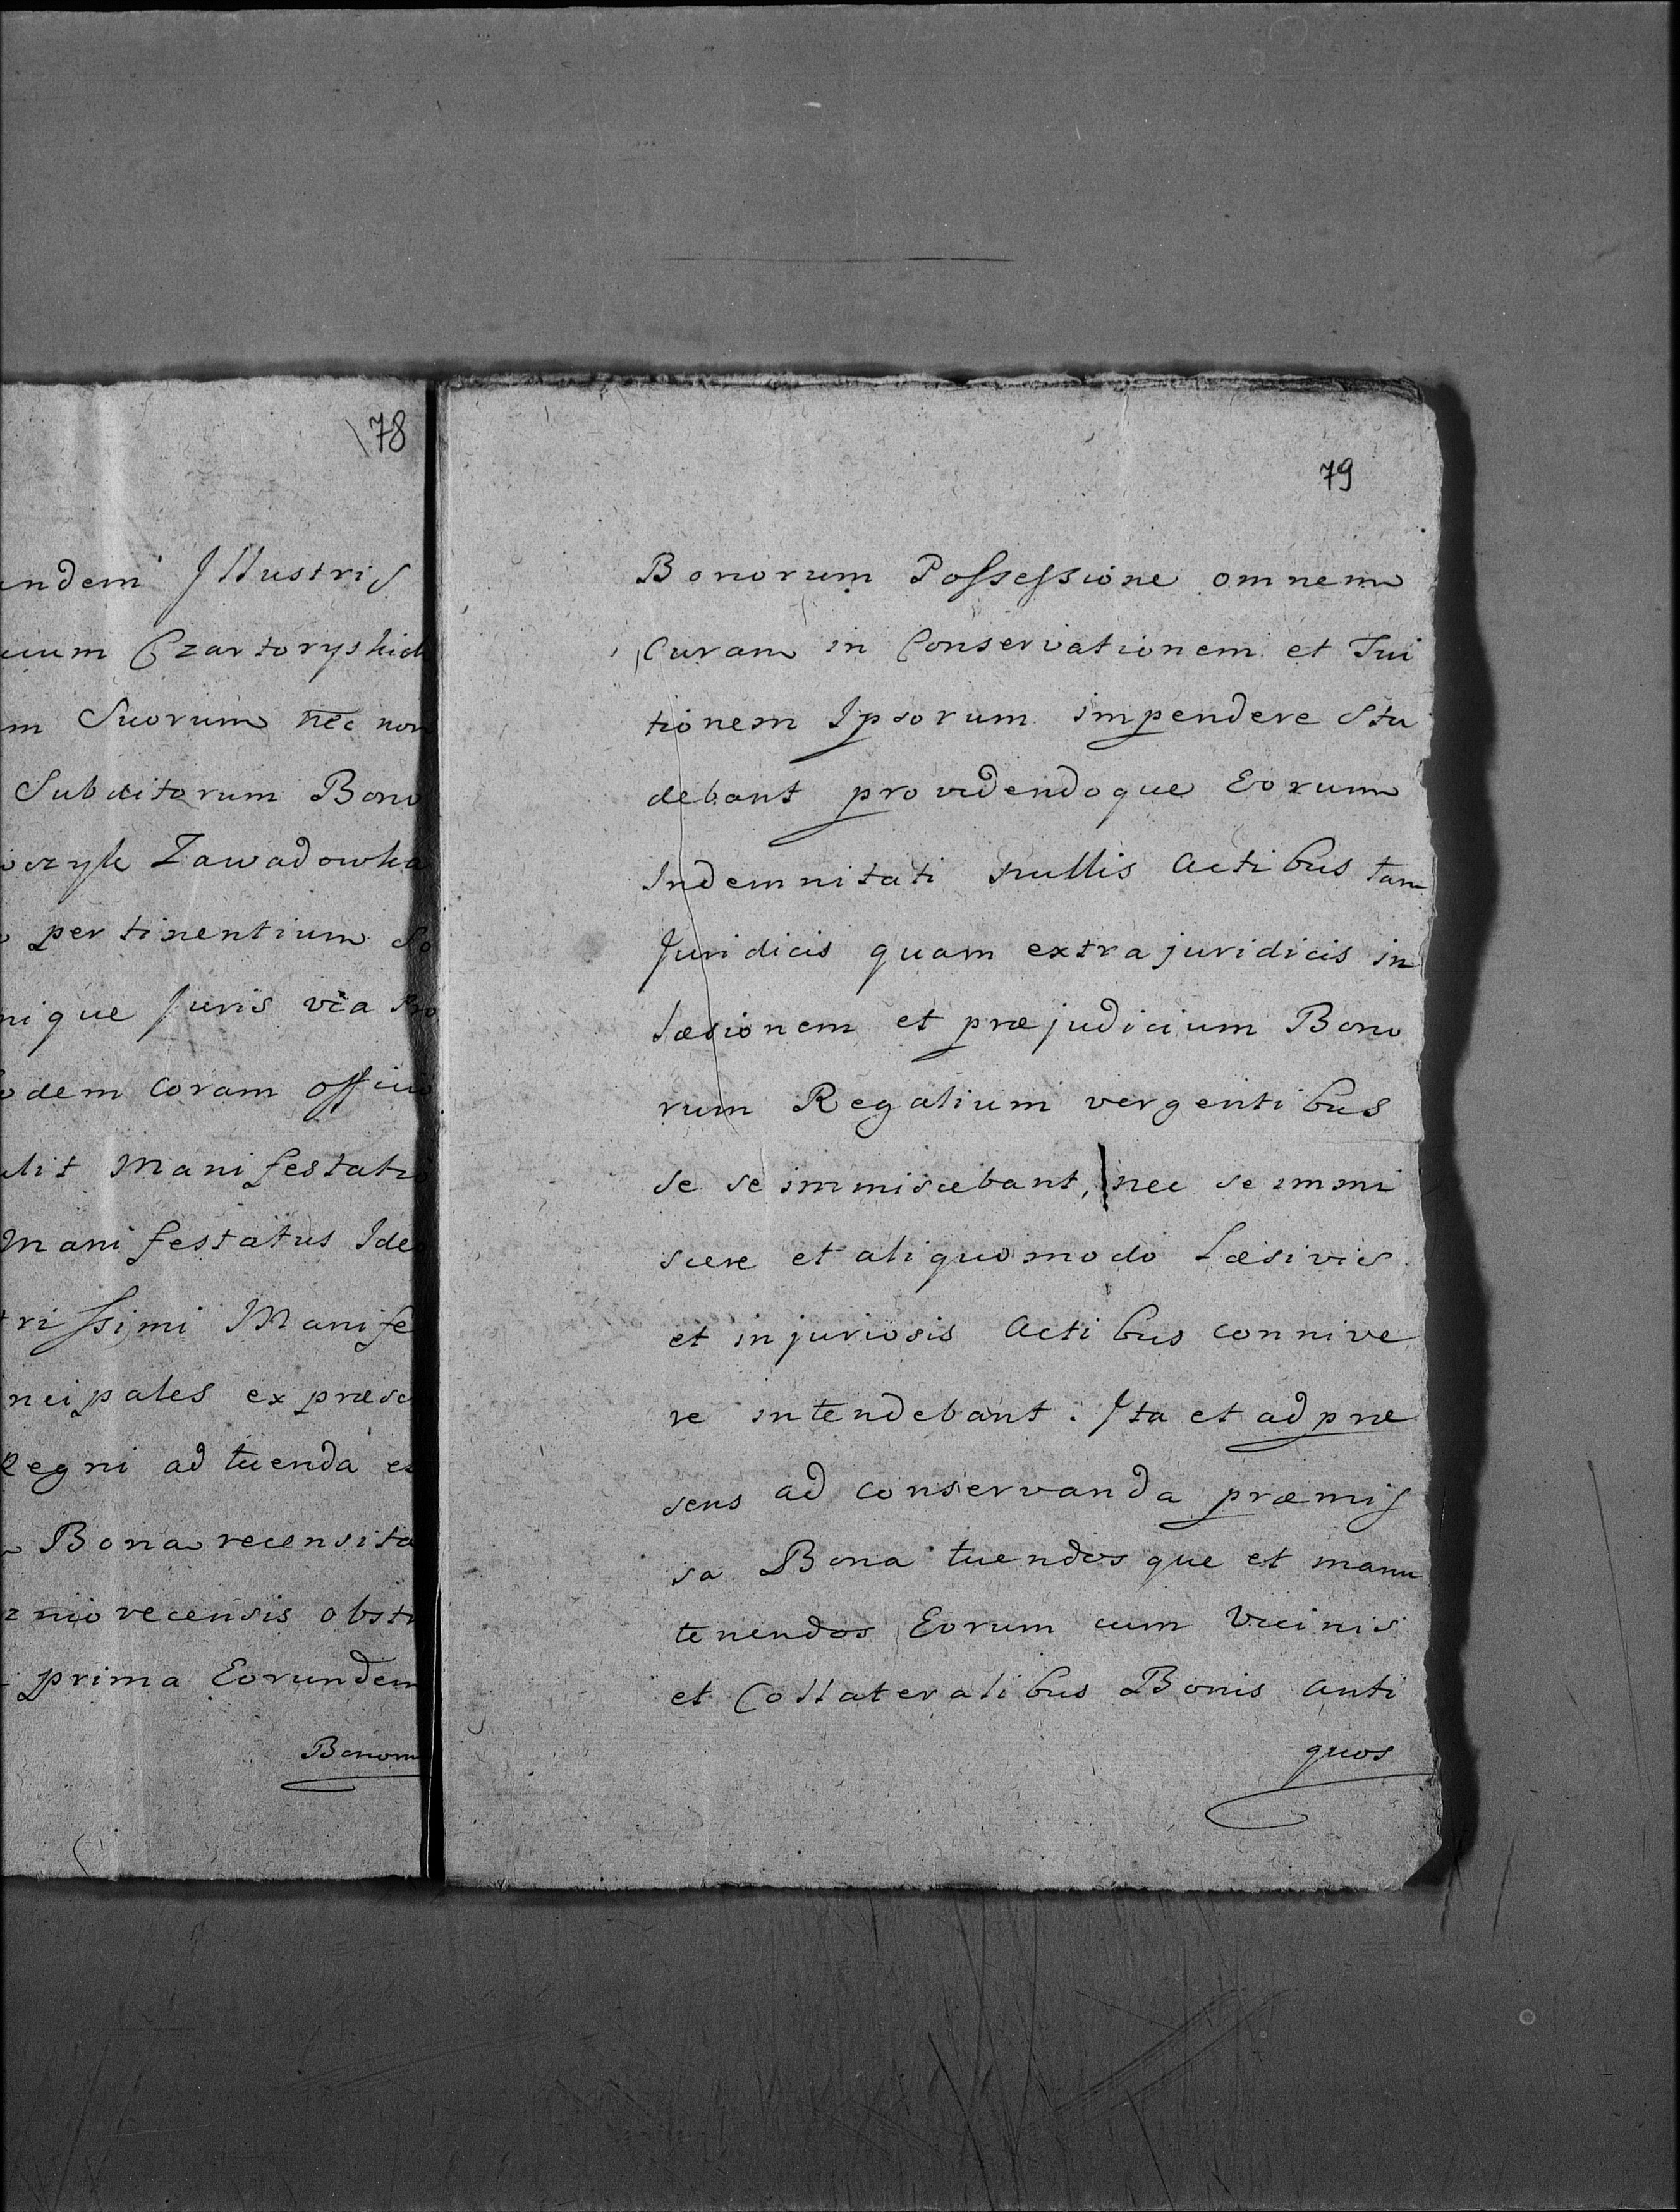 78
endem Illustris
cium Czartoryskich
m Suorum nec non
Subditorum Bono
Zawadowka
pertinentium So
nique Juris via
odem coram officio
Manifestatio
Manifestatus Ideo
rissimi Manife
ncipales ex præsc
Regni ad tuenda et
Bona recensita
recensis obst
prima Eorundem
Bonorum
79
Bonorum Possessione omnem
Curam in Conservationem et Tui
tionem Ipsorum impendere Stu
debant providendoque Eorum
Indemnitati nullis Actibus tam
Juridicis quam extrajuridicis in
læsionem et præjudicium Bono
rum Regalium vergentibus
se se immiscebant, nec se immi
scere et aliquo modo Læsivis
et injuriosis Actibus connive
re intendebant. Ita et ad præ
sens ad conservanda præmis
sa Bona tuendosque et manu
tenendos Eorum cum Vicinis
et Collateralibus Bonis anti
quos